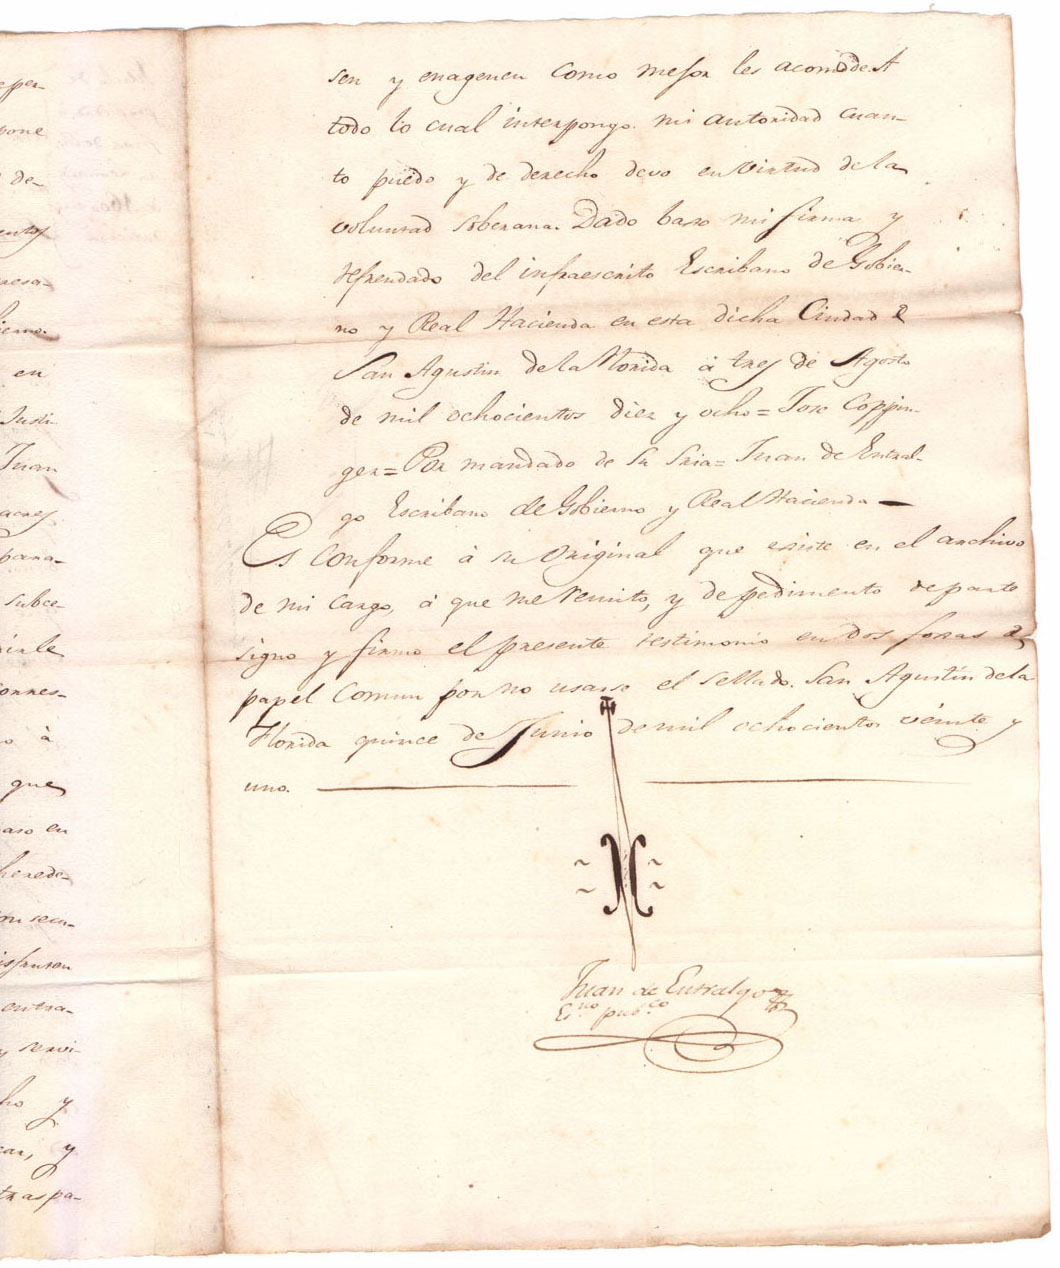 epper-
pone
de-
entos
resa-
ierno.
en
Justi-
Juan
acres
para-
subce-
dirle
corres-
o à
que
aso en
herede-
on secu-
isfruten
entra-
y servi-
ho y
car, y
traspa-
sen y enagenen como mejor les acomode A
todo lo cual interpongo mi autoridad cuan-
to puedo y de derecho devo en virtud de la
voluntad soberana. Dado baxo mi firma y
refrendado del infraescrito Escribano de Gobier-
no y Real Hacienda en esta dicha Ciudad de
San Agustin de la Florida á tres de Agosto
de mil ochocientos diez y ocho = Jose Coppin-
ger = Por mandado de su Sria = Juan de Entral-
go Escribano de Gobierno y Real Hacienda —
Es conforme á su original que existe en el archivo
de mi cargo, á que me remito, y de pedimento de parte
signo y firmo el presente testimonio en dos foxas de
papel comun por no usarse el sellado. San Agustin de la
Florida quince de Junio de mil ochocientos veinte y
uno.
Juan de Entralgo
Es.no pub.co